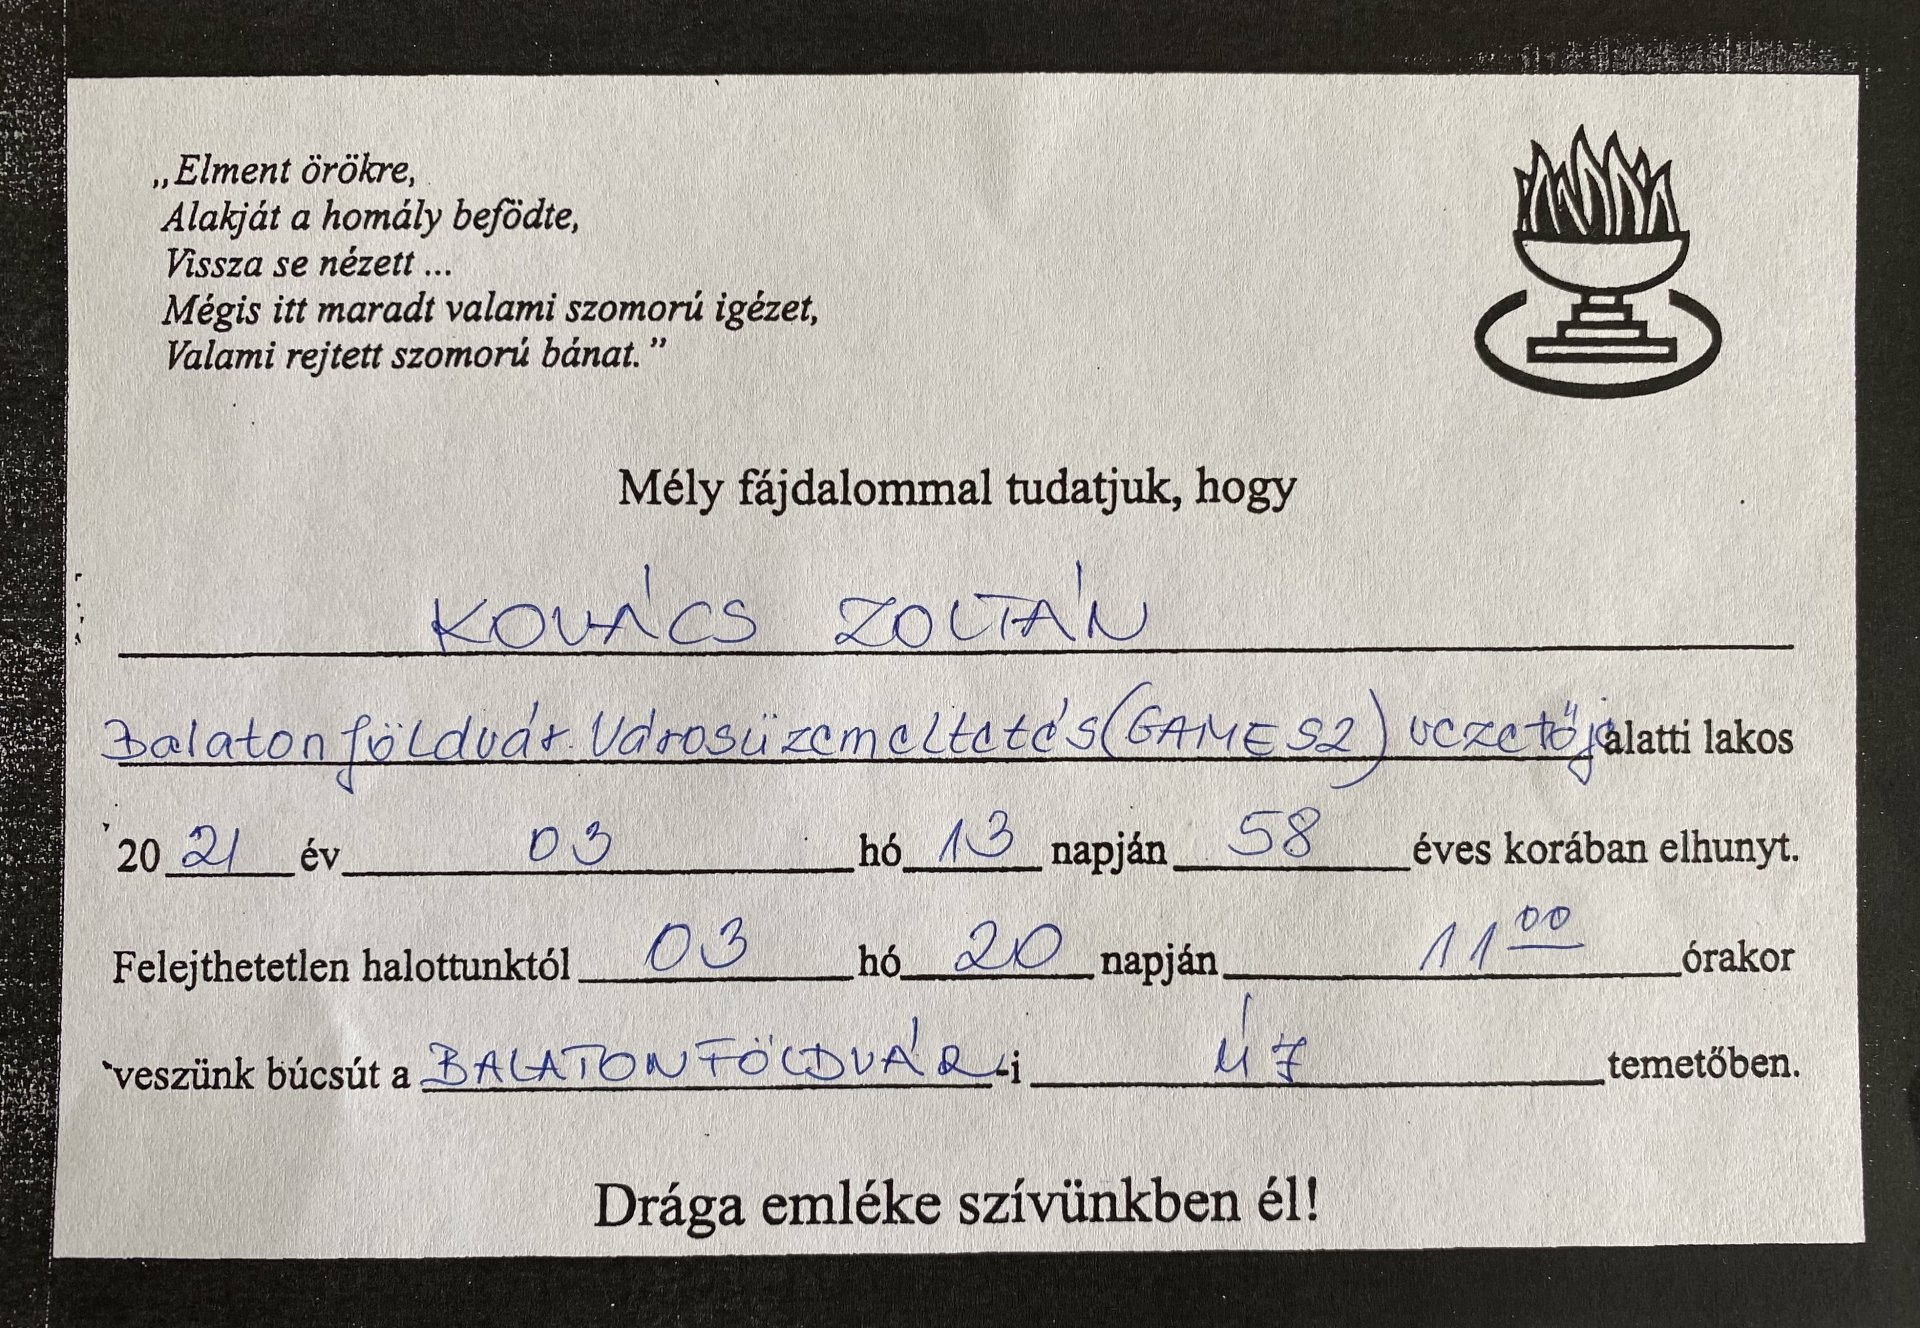 „Elment örökre,
Alakját a homály befödte,
Vissza se nézett ...
Mégis itt maradt valami szomorú igézet,
Valami rejtett szomorú bánat.”
Mély fájdalommal tudatjuk, hogy
KOVÁCS ZOLTÁN
Balatonföldvár Városüzemeltetés (GAMESZ) vezetője alatti lakos
20 21 év 03 hó 13 napján 58 éves korában elhunyt.
Felejthetetlen halottunktól 03 hó 20 napján 11 00 órakor
veszünk búcsút a BALATONFÖLDVÁR -i ÚJ temetőben.
Drága emléke szívünkben él!